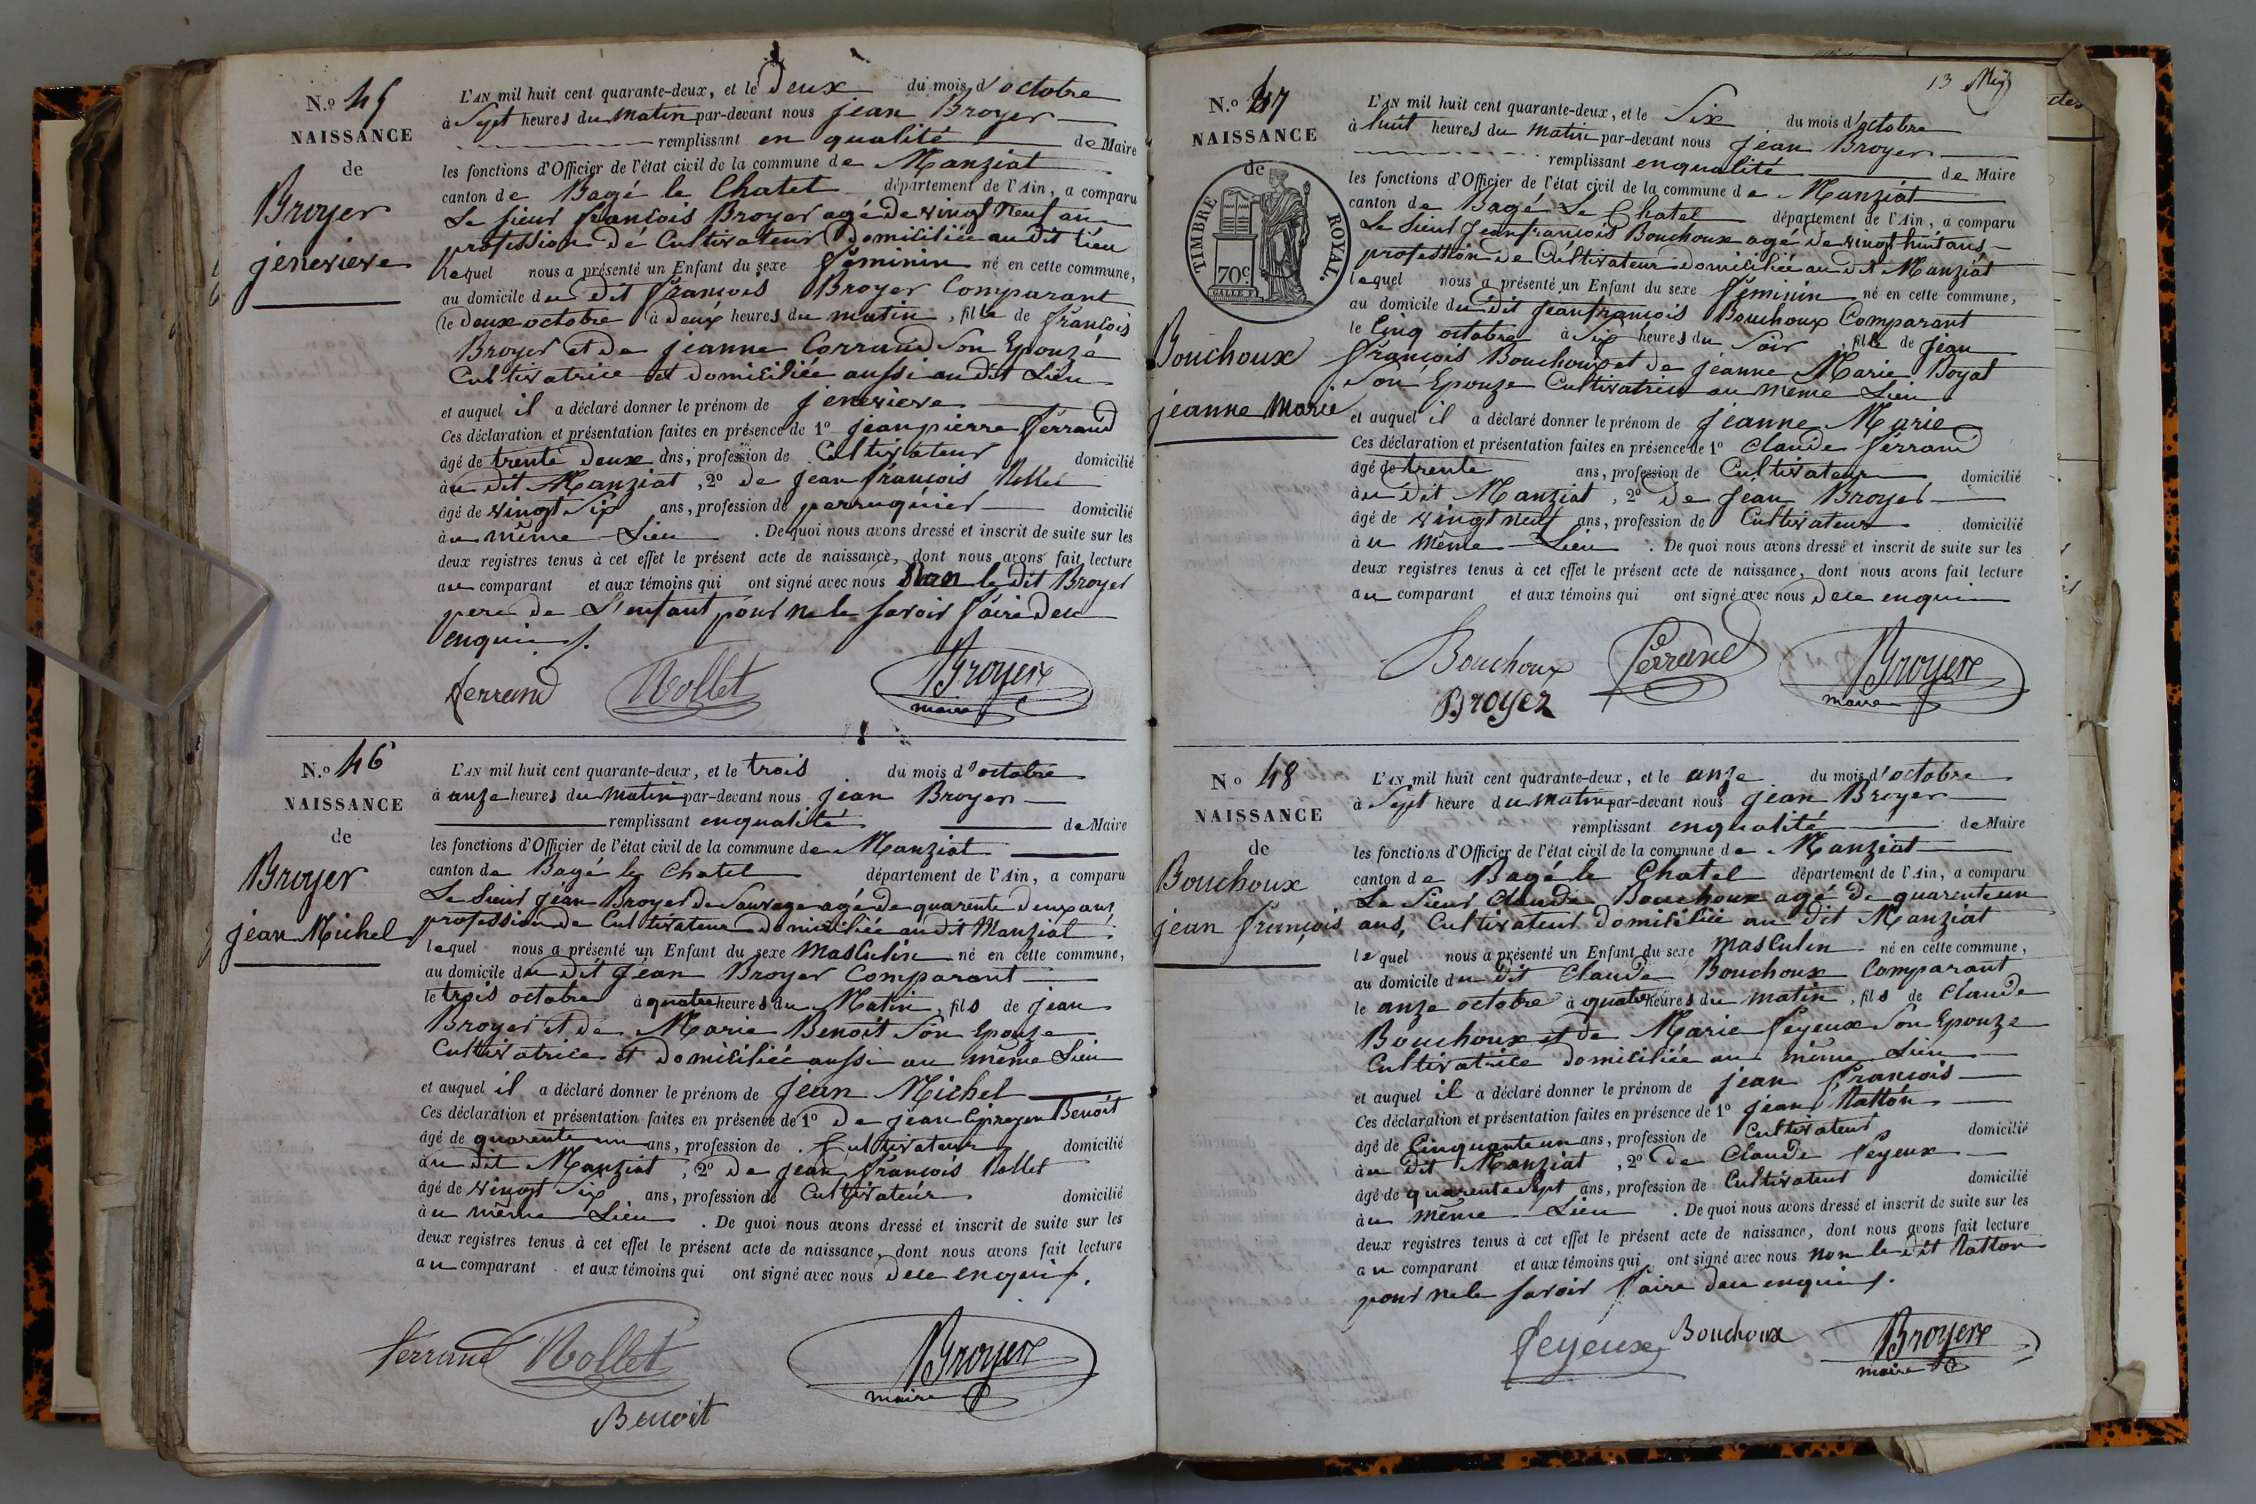 N.o 45
NAISSANCE
de
Broyer
jenevieve
L'AN mil huit cent quarante-deux, et le deux du mois d'octobre
à Sept heures du matin par-devant nous jean Broyer
remplissant en qualité de Maire
les fonctions d'Officier de l'état civil de la commune de Manziat
canton de Bagé le Chatel département de l'Ain, a comparu
Le sieur françois Broyer agé de vingt neuf an
profession dé Cultivateur domiciliée au dit lieu
lequel nous a présenté un Enfant du sexe féminin né en cette commune,
au domicile du dit françois Broyer Comparant
le deux octobre à deux heures du matin, fille de françois
Broyer et de jeanne Corrand Son Epouzé
Cultivatrice et domiciliée aussi au dit Lieu
et auquel il a déclaré donner le prénom de jenevieve
Ces déclaration et présentation faites en présence de 1° jean pierre ferrand
âgé de trente deux ans, profession de Cultivateur domicilié
àu dit Manziat, 2° de jean françois Rollet
âgé de vingt Six ans, profession de perruquiér domicilié
àu même Lieu. De quoi nous avons dressé et inscrit de suite sur les
deux registres tenus à cet effet le présent acte de naissance, dont nous avons fait lecture
au comparant et aux témoins qui ont signé avec nous Non le dit Broyer
pere de L'enfant pour ne le savoir faire de ce
enquis.
ferrand Rollet Broyer
maire
N.o 46
NAISSANCE
de
Broyer
jean Michel
L'AN mil huit cent quarante-deux, et le trois du mois d'octobre
à anze heures du matin par-devant nous jean Broyer
remplissant enqualité de Maire
les fonctions d'Officier de l'état civil de la commune de Manziat
canton de Bagé le Chatel département de l'Ain, a comparu
Le Sieur jean Broyer de Sauvage agé de quarente deux ans
profession de Cultivateur domiciliée au dit Manziat
lequel nous a présenté un Enfant du sexe masculin né en cette commune,
au domicile du dit jean Broyer Comparant
le trois octobre à quatre heures du Matin, fils de jean
Broyer et de Marie Benoit Son Epouze
Cultivatrice et domiciliée aussi au même Lieu
et auquel il a déclaré donner le prénom de jean Michel
Ces déclaration et présentation faites en présence de 1° De jean Benoit
âgé de quarente un ans, profession de Cultivateur domicilié
àu dit Manziat, 2° de jean françois Rollet
âgé de vingt Six ans, profession de Cultivateur domicilié
àu même Lieu. De quoi nous avons dressé et inscrit de suite sur les
deux registres tenus à cet effet le présent acte de naissance, dont nous avons fait lecture
au comparant et aux témoins qui ont signé avec nous de ce enquis.
ferrand Rollet Broyer
maire
Benoit
13
N.o 47
NAISSANCE
de
TIMBRE ROYAL
70c
Bouchoux
jeanne Marie
L'AN mil huit cent quarante-deux, et le Six du mois d'octobre
à huit heures du matin par-devant nous jean Broyer
remplissant enqualité de Maire
les fonctions d'Officier de l'état civil de la commune de Manziat
canton de Bagé Le Chatel département de l'Ain, a comparu
Le Sieur jeanfrançois Bouchoux agé de vingt huit ans
profession de Cultivateur domiciliée au dit Manziat
lequel nous a présenté un Enfant du sexe féminin né en cette commune,
au domicile du dit jeanfrançois Bouchoux Comparant
le Cinq octobre à Six heures du Soir, fille de jean
françois Bouchoux et de jeanne Marie Boyat
Son Epouze Cultivatrice au même Lieu
et auquel il a déclaré donner le prénom de jeanne Marie
Ces déclaration et présentation faites en présence de 1° claude ferrand
âgé de trente ans, profession de Cultivateur domicilié
àu dit Manziat, 2° De jean Broyer
âgé de vingt neuf ans, profession de Cultivateur domicilié
àu même Lieu. De quoi nous avons dressé et inscrit de suite sur les
deux registres tenus à cet effet le présent acte de naissance, dont nous avons fait lecture
au comparant et aux témoins qui ont signé avec nous de ce enquis
Bouchoux ferrand Broyer
Broyer maire
N.o 48
NAISSANCE
de
Bouchoux
jean françois
L'AN mil huit cent quarante-deux, et le anze du mois d'octobre
à Sept heure du matin par-devant nous jean Broyer
remplissant enqualité de Maire
les fonctions d'Officier de l'état civil de la commune de Manziat
canton de Bagé le Chatel département de l'Ain, a comparu
Le Sieur Claude Bouchoux agé de quarente un
ans, Cultivateur domiciliée au dit Manziat
lequel nous a présenté un Enfant du sexe masculin né en cette commune,
au domicile du dit Claude Bouchoux Comparant
le anze octobre à quatre heures du matin, fils de Claude
Bouchoux et de Marie feyeux Son Epouze
Cultivatrice domiciliée au même Lieu
et auquel il a déclaré donner le prénom de jean françois
Ces déclaration et présentation faites en présence de 1° jean Natton
âgé de Cinquante un ans, profession de Cultivateur domicilié
àu dit Manziat, 2° de Claude feyeux
âgé de quarente Sept ans, profession de Cultivateur domicilié
àu même Lieu. De quoi nous avons dressé et inscrit de suite sur les
deux registres tenus à cet effet le présent acte de naissance, dont nous avons fait lecture
au comparant et aux témoins qui ont signé avec nous non le dit Natton
pour ne le savoir faire de ce enquis.
feyeux Bouchoux Broyer
maire